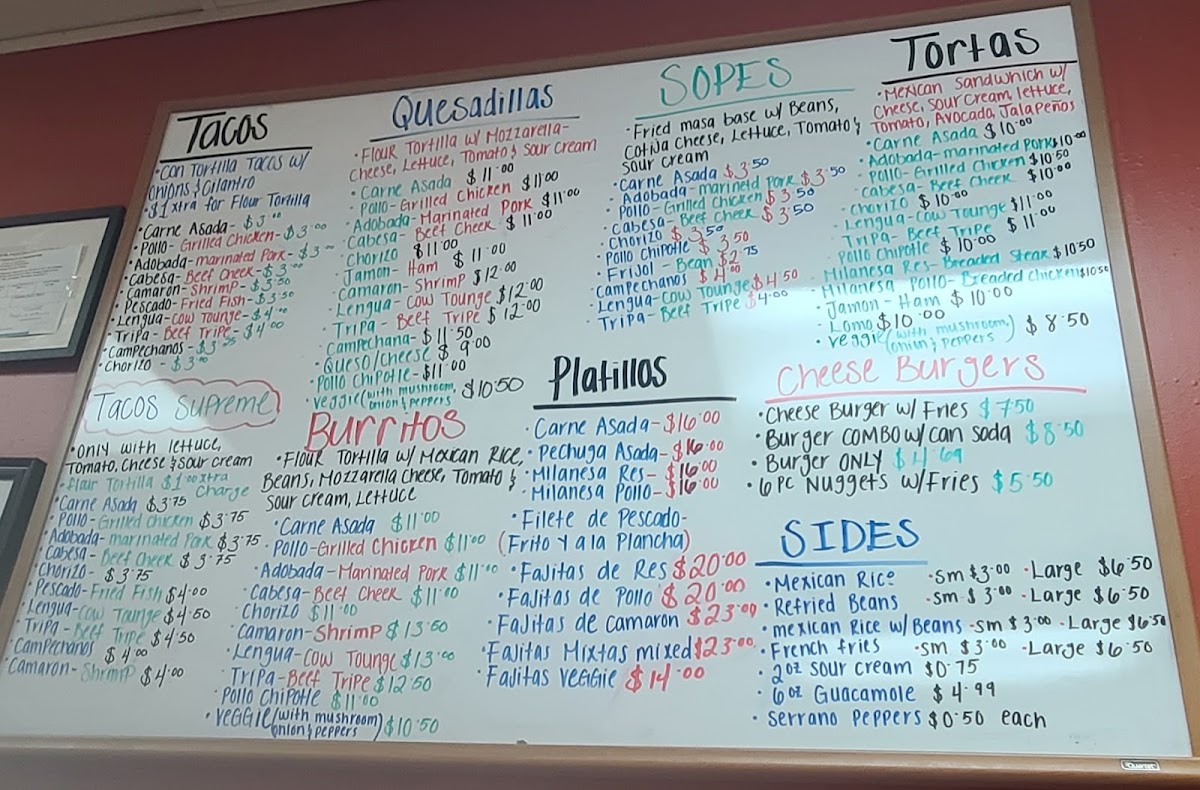 Tacos
• Con Tortilla Tacos w/
Onions & Cilantro
• $1 xtra for Flour Tortilla
• Carne Asada - $3.00
• Pollo - Grilled Chicken - $3.00
• Adobada - marinated Pork - $3.00
• Cabesa - Beef Cheek - $3.00
• Camaron - Shrimp - $3.50
• Pescado - Fried Fish - $3.50
• Lengua - Cow Tounge - $4.00
• Tripa - Beef Tripe - $4.00
• Campechanos - $3.25
• Chorizo - $3.00
Tacos Supreme
• Only with lettuce,
Tomato, Cheese & Sour cream
• Flair Tortilla $1.00 xtra
Charge
• Carne Asada $3.75
• Pollo - Grilled Chicken $3.75
• Adobada - marinated Pork $3.75
• Cabesa - Beef Cheek $3.75
• Chorizo - $3.75
• Pescado - Fried Fish $4.00
• Lengua - Cow Tounge $4.50
• Tripa - Beef Tripe $4.50
• Campechanos $4.00
• Camaron - Shrimp $4.00
Quesadillas
• Flour Tortilla w/ Mozzarella -
Cheese, Lettuce, Tomato & Sour Cream
• Carne Asada $11.00
• Pollo - Grilled Chicken $11.00
• Adobada - Marinated Pork $11.00
• Cabesa - Beef Cheek $11.00
• Chorizo $11.00
• Jamon - Ham $11.00
• Camaron - Shrimp $12.00
• Lengua - Cow Tounge $12.00
• Tripa - Beef Tripe $12.00
• Campechana - $11.50
• Queso/Cheese $9.00
• Pollo Chipotle - $11.00
• Veggie (with mushroom, onion & peppers $10.50
Burritos
• Flour Tortilla w/ Mexican Rice,
Beans, Mozzarella Cheese, Tomato &
Sour cream, Lettuce
• Carne Asada $11.00
• Pollo - Grilled Chicken $11.00
• Adobada - Marinated Pork $11.00
• Cabesa - Beef Cheek $11.00
• Chorizo $11.00
• Camaron - Shrimp $13.50
• Lengua - Cow Tounge $13.00
• Tripa - Beef Tripe $12.50
• Pollo Chipotle $11.00
• Veggie (with mushroom, onion & peppers) $10.50
Sopes
• Fried masa base w/ Beans,
Cotija Cheese, Lettuce, Tomato &
Sour cream
• Carne Asada $3.50
• Adobada - marineted Pork $3.50
• Pollo - Grilled Chicken $3.50
• Cabesa - Beef Cheek $3.50
• Chorizo $3.50
• Pollo Chipotle $3.50
• Frijol - Bean $2.75
• Campechanos $4.00
• Lengua - Cow Tounge $4.50
• Tripa - Beef Tripe $4.00
Platillos
• Carne Asada - $16.00
• Pechuga Asada - $16.00
• Milanesa Res - $16.00
• Milanesa Pollo - $16.00
• Filete de Pescado -
(Frito Y a la Plancha)
• Fajitas de Res $20.00
• Fajitas de Pollo $20.00
• Fajitas de camaron $23.00
• Fajitas Mixtas mixed $23.00
• Fajitas Veggie $14.00
Tortas
• Mexican Sandwhich w/
Cheese, Sour Cream, lettuce,
Tomato, Avocado, Jalapeños
• Carne Asada $10.00
• Adobada - marinated Pork $10.00
• Pollo - Grilled Chicken $10.50
• Cabesa - Beef Cheek $10.00
• Chorizo $10.00
• Lengua - Cow Tounge $11.00
• Tripa - Beef Tripe $11.00
• Pollo Chipotle $10.00
• Milanesa Res - Breaded Steak $10.50
• Milanesa Pollo - Breaded Chicken $10.50
• Jamon - Ham $10.00
• Lomo $10.00
• Veggie (with mushroom, onion & peppers) $8.50
Cheese Burgers
• Cheese Burger w/ Fries $7.50
• Burger COMBO w/ can soda $8.50
• Burger ONLY $4.69
• 6 PC Nuggets w/ Fries $5.50
SIDES
• Mexican Rice • sm $3.00 • Large $6.50
• Refried Beans • sm $3.00 • Large $6.50
• mexican Rice w/ Beans • sm $3.00 • Large $6.50
• French fries • sm $3.00 • Large $6.50
• 2oz Sour cream $0.75
• 6oz Guacamole $4.99
• Serrano Peppers $0.50 each
Quartet